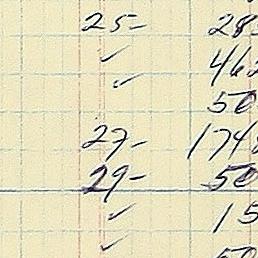 25- 28
✓ 462
✓
50
27- 174
29- 50
✓ 15
✓